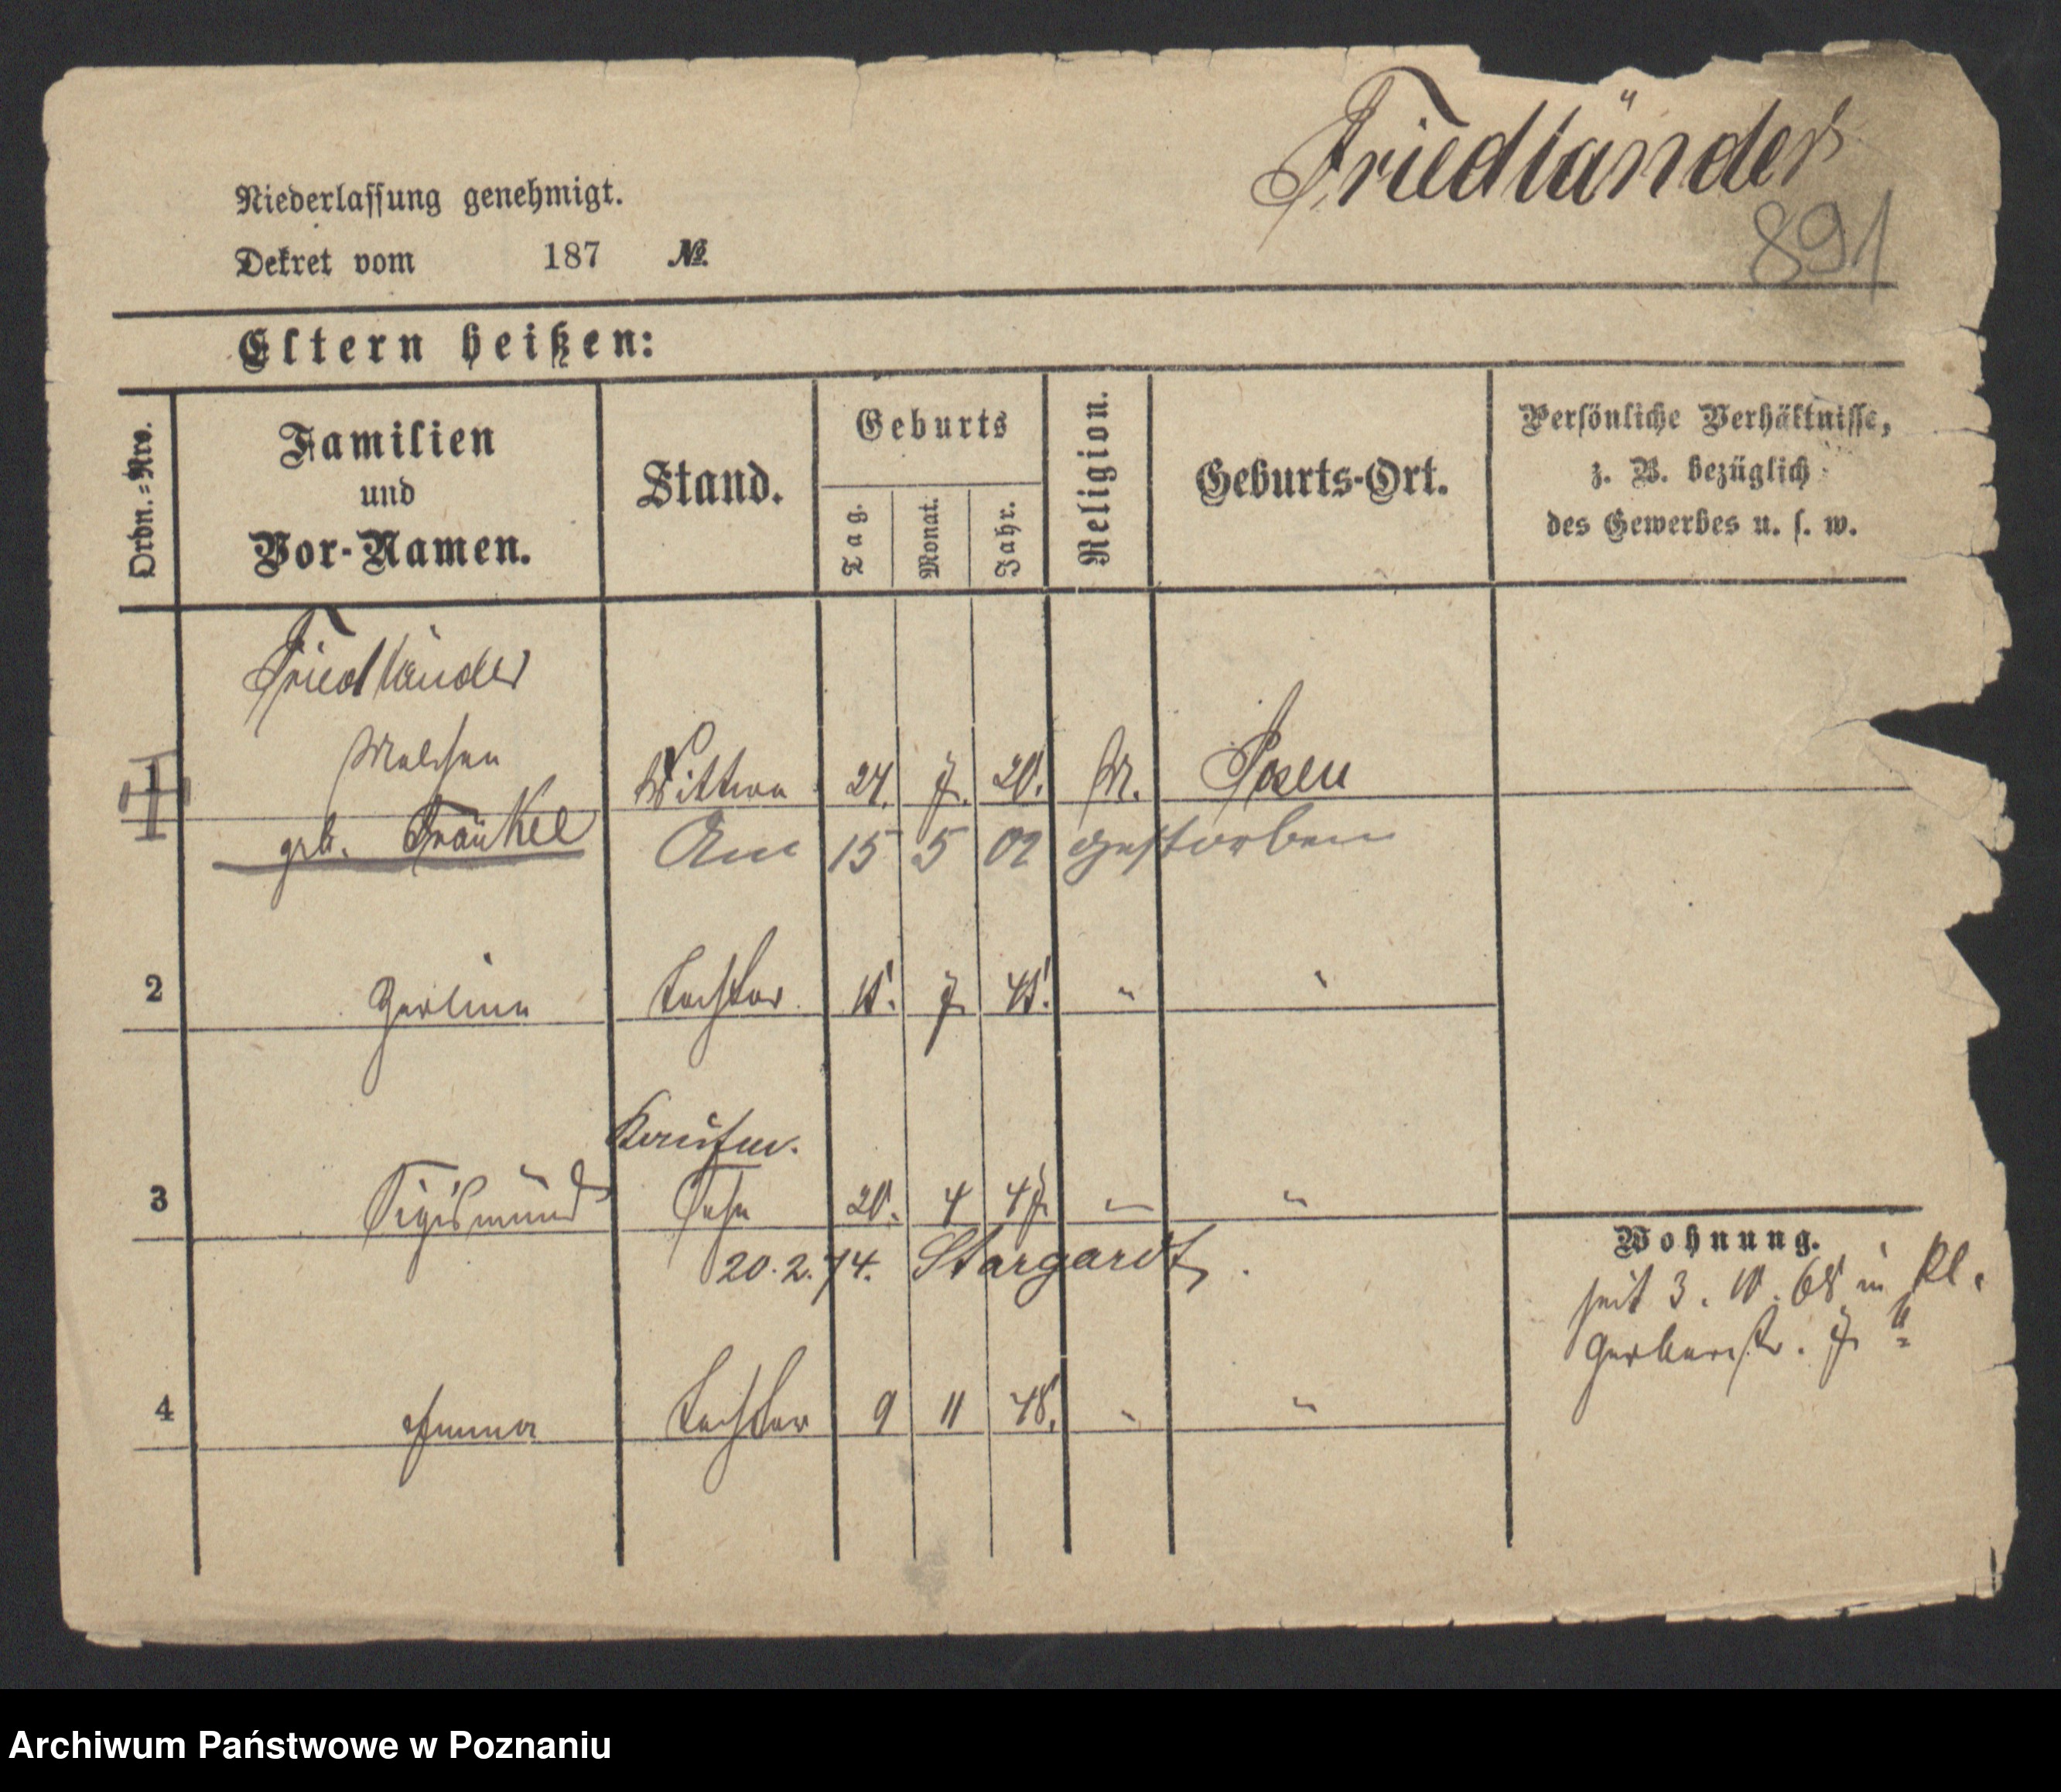 Friedländer
891
Niederlassung genehmigt.
Dekret vom 187 №
Eltern heißen:
Ordn.=Nro. Familien und Vor-Namen. Stand. Geburts Tag. Monat. Jahr. Religion. Geburts-Ort. Persönliche Verhältnisse, z. B. bezüglich des Gewerbes u. s. w.
Friedländer
1 Wittwe 24. 7. 20. M. Posen
geb. Fränkel Am 15 5 02 gestorben
2 Tochter 7 " "
Kaufm.
3 Sigismund Sohn 20. 4 47 " "
20.2.74. Stargardt.
4 Emma Tochter 9 11 48. " "
Wohnung.
seit 3. 10. 68 in kl.
Gerberstr. 7
Archiwum Państwowe w Poznaniu